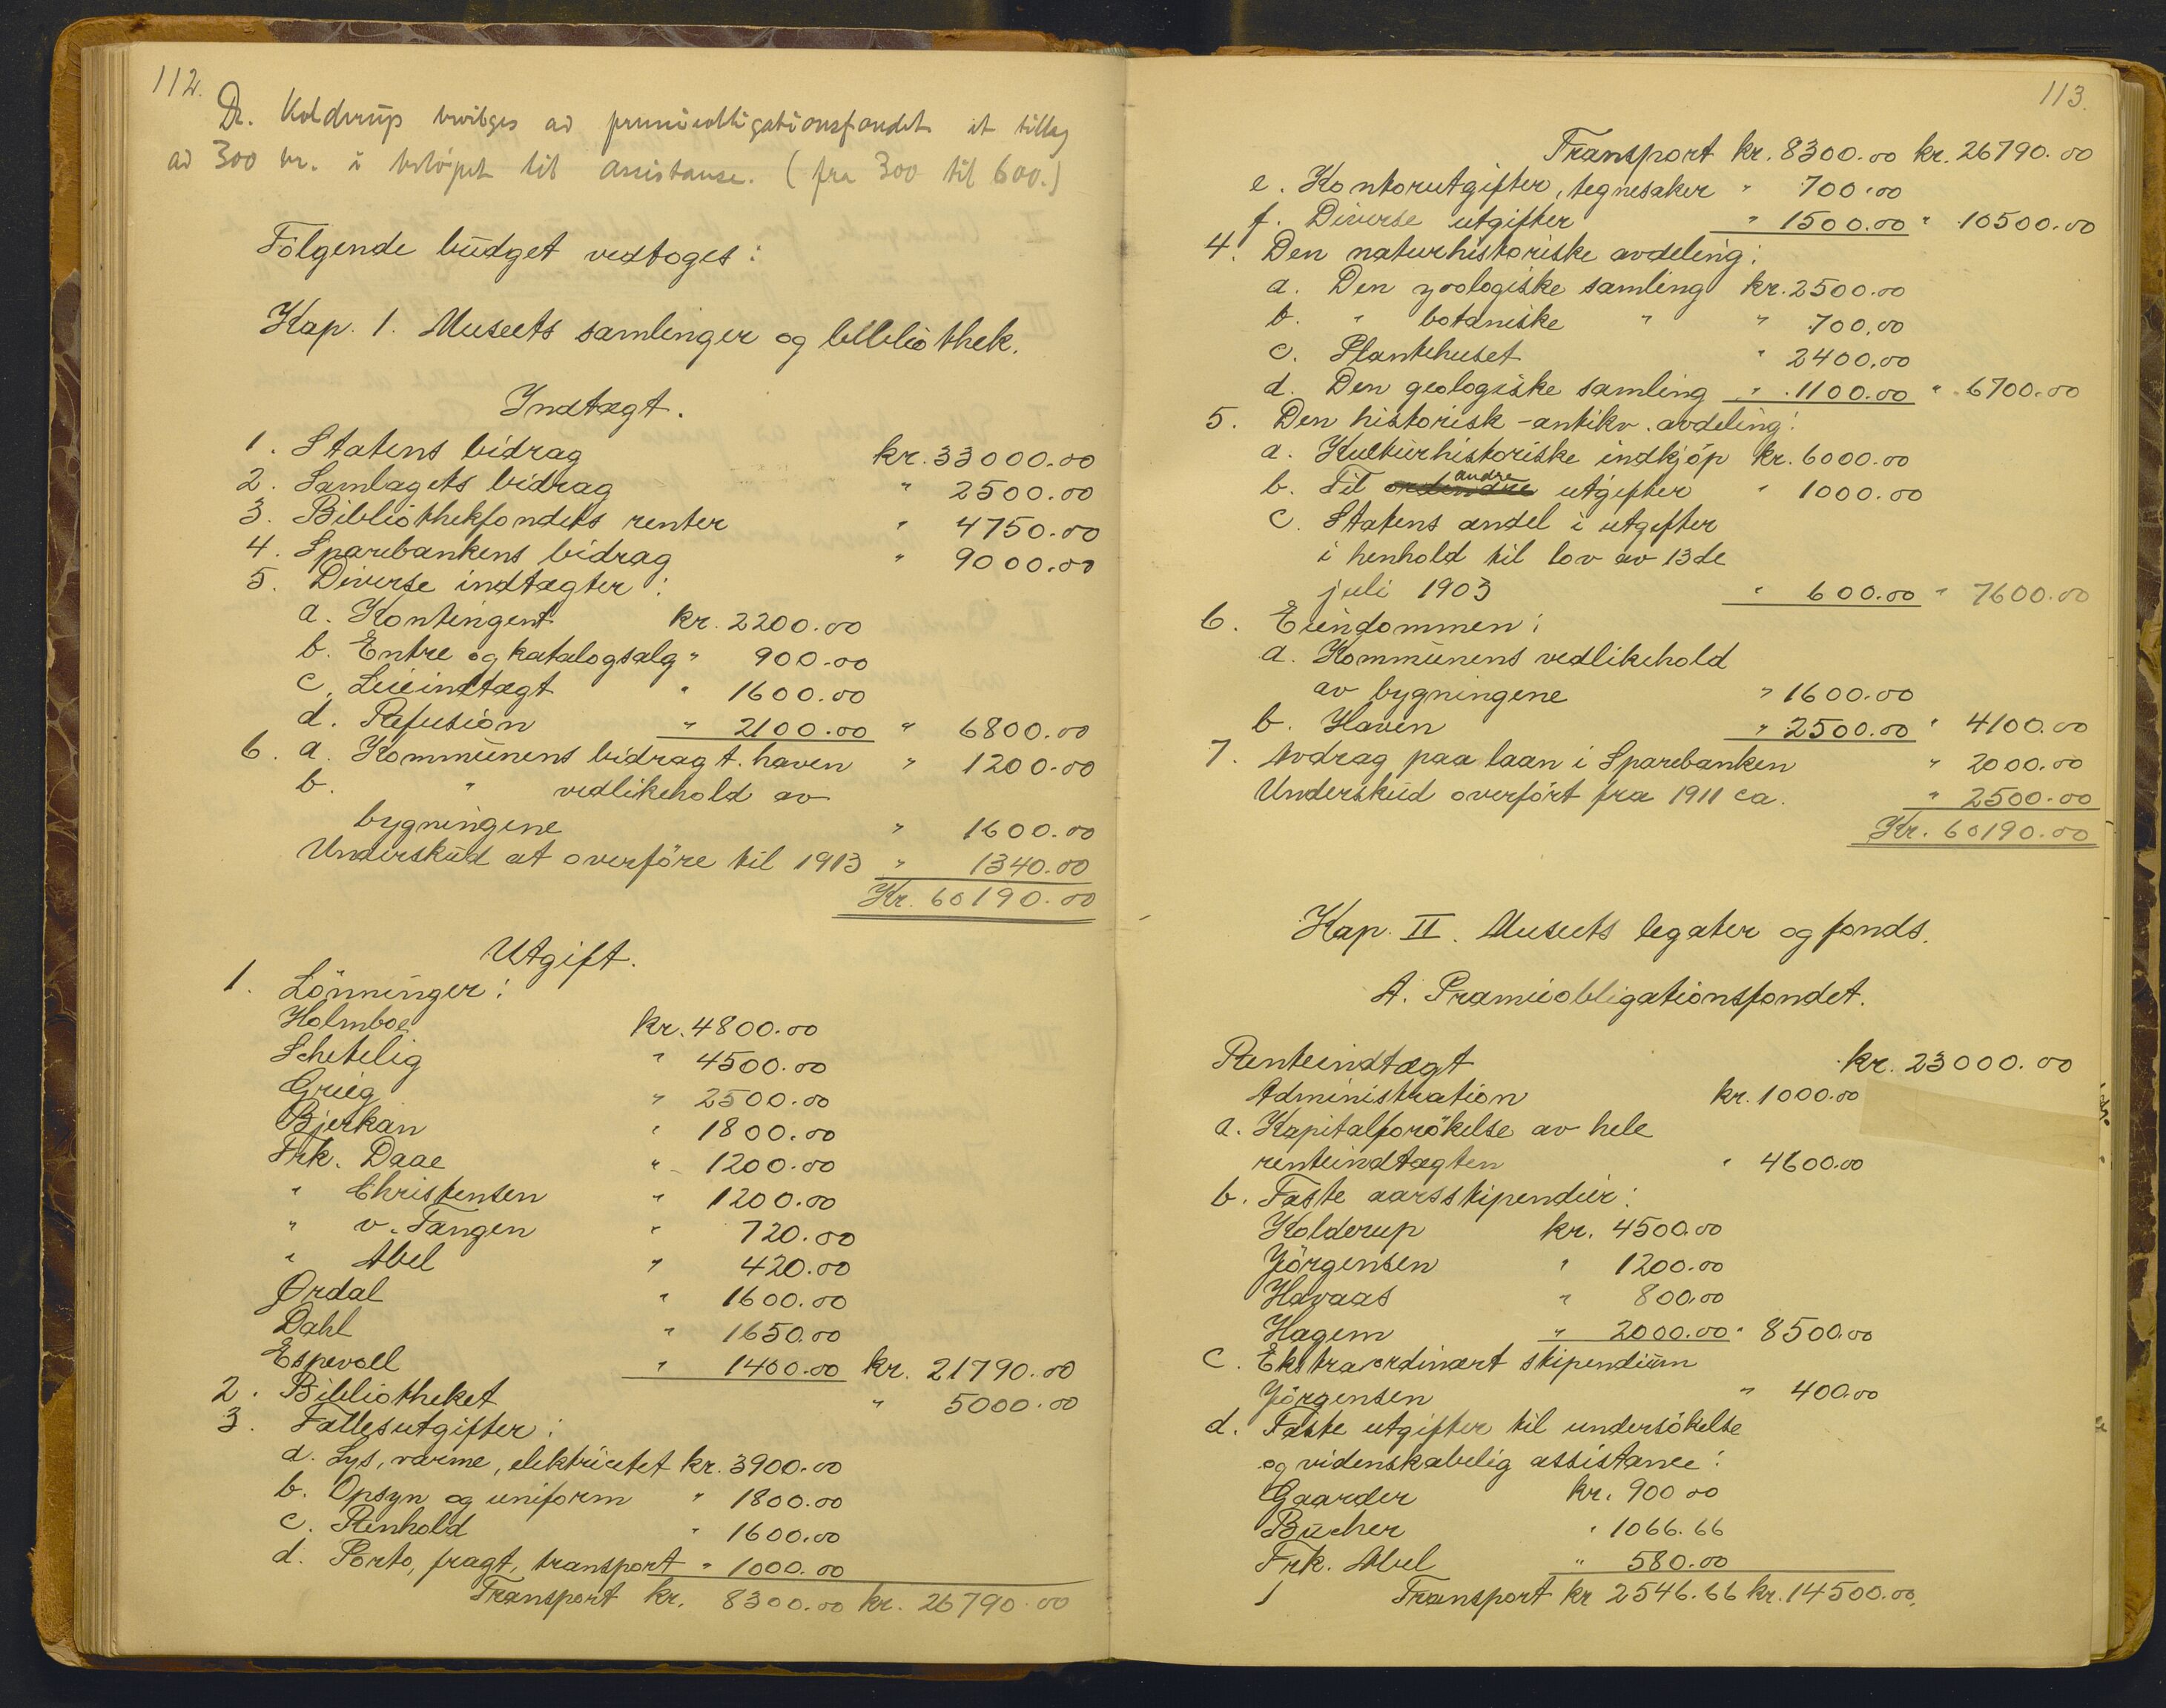 112.
Dr. Kolderup bevilges av premieobligationsfondet et tillæg
av 300 kr. i beløpet til assistanse. (fra 300 til 600.)
Følgende budget vedtoges:
Kap. 1. Museets samlinger og bibliothek.
Indtægt.
1. Statens bidrag kr. 33000.00
2. Samlagets bidrag " 2500.00
3. Bibliothekfondets renter " 4750.00
4. Sparebankens bidrag " 9000.00
5. Diverse indtægter:
a. Kontingent kr. 2200.00
b. Entre og katalogsalg " 900.00
c. Leieindtægt " 1600.00
d. Refusion " 2100.00 " 6800.00
6. a. Kommunens bidrag t. haven " 1200.00
b. " vedlikehold av
bygningene " 1600.00
Underskud at overføre til 1913 " 1340.00
Kr. 60190.00
Utgift.
1. Lönninger:
Holmboe kr. 4800.00
Schetelig " 4500.00
Grieg " 2500.00
Bjerkan " 1800.00
Frk. Daae " 1200.00
" Christensen " 1200.00
" v. Tangen " 720.00
" Abel " 420.00
Ørdal " 1600.00
Dahl " 1650.00
Espevoll " 1400.00 kr. 21790.00
2. Bibliotheket " 5000.00
3. Fællesutgifter:
a. Lys, varme, elektricitet kr. 3900.00
b. Opsyn og uniform " 1800.00
c. Renhold " 1600.00
d. Porto, fragt, transport " 1000.00
Transport kr. 8300.00 kr. 26790.00
113.
Transport kr. 8300.00 kr. 26790.00
e. Kontorutgifter, tegnesaker " 700.00
f. Diverse utgifter " 1500.00 " 10500.00
4. Den naturhistoriske avdeling:
a. Den zoologiske samling kr. 2500.00
b. " botaniske " " 700.00
c. Plantehuset " 2400.00
d. Den geologiske samling " 1100.00 " 6700.00
5. Den historisk-antikv. avdeling:
a. Kulturhistoriske indkjöp kr. 6000.00
b. Til andre utgifter " 1000.00
c. Statens andel i utgifter
i henhold til lov av 13de
juli 1903 " 600.00 " 7600.00
6. Eiendommen:
a. Kommunens vedlikehold
av bygningene " 1600.00
b. Haven " 2500.00 " 4100.00
7. Avdrag paa laan i Sparebanken " 2000.00
Underskud overført fra 1911 ca. " 2500.00
Kr. 60190.00
Kap. II. Museets legater og fonds.
A. Præmieobligationsfondet.
Renteindtægt kr. 23000.00
Administration kr. 1000.00
a. Kapitalforökelse av hele
renteindtægten " 4600.00
b. Faste aarsstipendier:
Kolderup kr. 4500.00
Jörgensen " 1200.00
Havaas " 800.00
Hagem " 2000.00 " 8500.00
c. Ekstraordinært stipendium
Jörgensen " 400.00
d. Faste utgifter til undersökelse
og videnskabelig assistance:
Gaarder kr. 900.00
Bücher " 1066.66
Frk. Abel " 580.00
Transport kr 2546.66 kr. 14500.00.